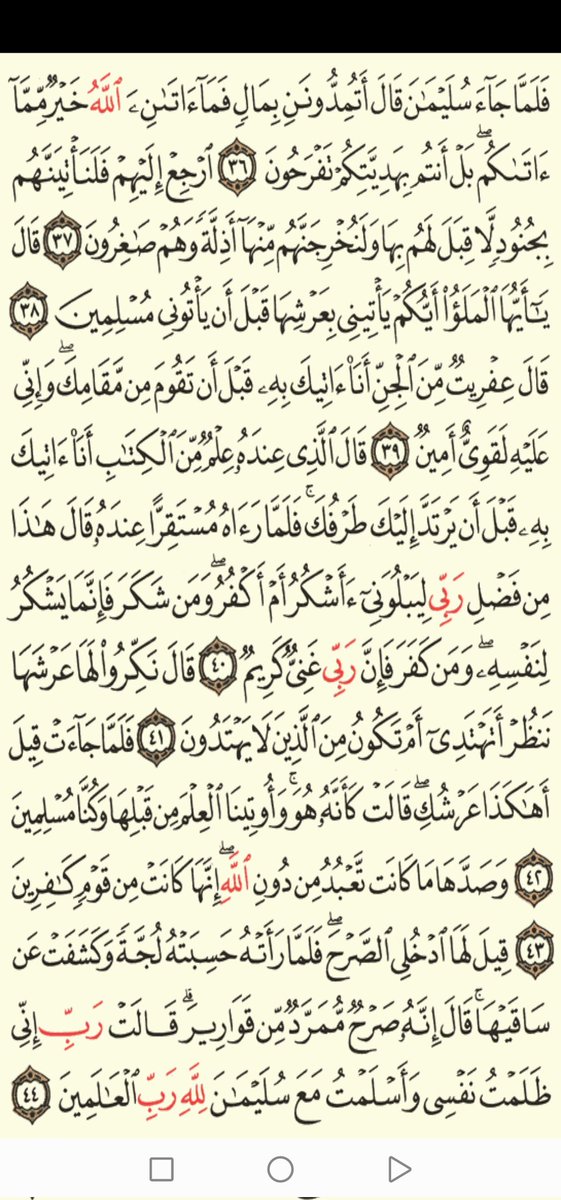 فَلَمَّا جَآءَ سُلَيۡمَٰنَ قَالَ أَتُمِدُّونَنِ بِمَالٖ فَمَآ ءَاتَىٰنِۦَ ٱللَّهُ خَيۡرٞ مِّمَّآ
ءَاتَىٰكُمۚ بَلۡ أَنتُم بِهَدِيَّتِكُمۡ تَفۡرَحُونَ ٣٦ ٱرۡجِعۡ إِلَيۡهِمۡ فَلَنَأۡتِيَنَّهُم
بِجُنُودٖ لَّا قِبَلَ لَهُم بِهَا وَلَنُخۡرِجَنَّهُم مِّنۡهَآ أَذِلَّةٗ وَهُمۡ صَٰغِرُونَ ٣٧ قَالَ
يَٰٓأَيُّهَا ٱلۡمَلَؤُاْ أَيُّكُمۡ يَأۡتِينِي بِعَرۡشِهَا قَبۡلَ أَن يَأۡتُونِي مُسۡلِمِينَ ٣٨
قَالَ عِفۡرِيتٞ مِّنَ ٱلۡجِنِّ أَنَا۠ ءَاتِيكَ بِهِۦ قَبۡلَ أَن تَقُومَ مِن مَّقَامِكَۖ وَإِنِّي
عَلَيۡهِ لَقَوِيٌّ أَمِينٞ ٣٩ قَالَ ٱلَّذِي عِندَهُۥ عِلۡمٞ مِّنَ ٱلۡكِتَٰبِ أَنَا۠ ءَاتِيكَ
بِهِۦ قَبۡلَ أَن يَرۡتَدَّ إِلَيۡكَ طَرۡفُكَۚ فَلَمَّا رَءَاهُ مُسۡتَقِرًّا عِندَهُۥ قَالَ هَٰذَا
مِن فَضۡلِ رَبِّي لِيَبۡلُوَنِيٓ ءَأَشۡكُرُ أَمۡ أَكۡفُرُۖ وَمَن شَكَرَ فَإِنَّمَا يَشۡكُرُ
لِنَفۡسِهِۦۖ وَمَن كَفَرَ فَإِنَّ رَبِّي غَنِيّٞ كَرِيمٞ ٤٠ قَالَ نَكِّرُواْ لَهَا عَرۡشَهَا
نَنظُرۡ أَتَهۡتَدِيٓ أَمۡ تَكُونُ مِنَ ٱلَّذِينَ لَا يَهۡتَدُونَ ٤١ فَلَمَّا جَآءَتۡ قِيلَ
أَهَٰكَذَا عَرۡشُكِۖ قَالَتۡ كَأَنَّهُۥ هُوَۚ وَأُوتِينَا ٱلۡعِلۡمَ مِن قَبۡلِهَا وَكُنَّا مُسۡلِمِينَ
٤٢ وَصَدَّهَا مَا كَانَت تَّعۡبُدُ مِن دُونِ ٱللَّهِۖ إِنَّهَا كَانَتۡ مِن قَوۡمٖ كَٰفِرِينَ
٤٣ قِيلَ لَهَا ٱدۡخُلِي ٱلصَّرۡحَۖ فَلَمَّا رَأَتۡهُ حَسِبَتۡهُ لُجَّةٗ وَكَشَفَتۡ عَن
سَاقَيۡهَاۚ قَالَ إِنَّهُۥ صَرۡحٞ مُّمَرَّدٞ مِّن قَوَارِيرَۗ قَالَتۡ رَبِّ إِنِّي
ظَلَمۡتُ نَفۡسِي وَأَسۡلَمۡتُ مَعَ سُلَيۡمَٰنَ لِلَّهِ رَبِّ ٱلۡعَٰلَمِينَ ٤٤